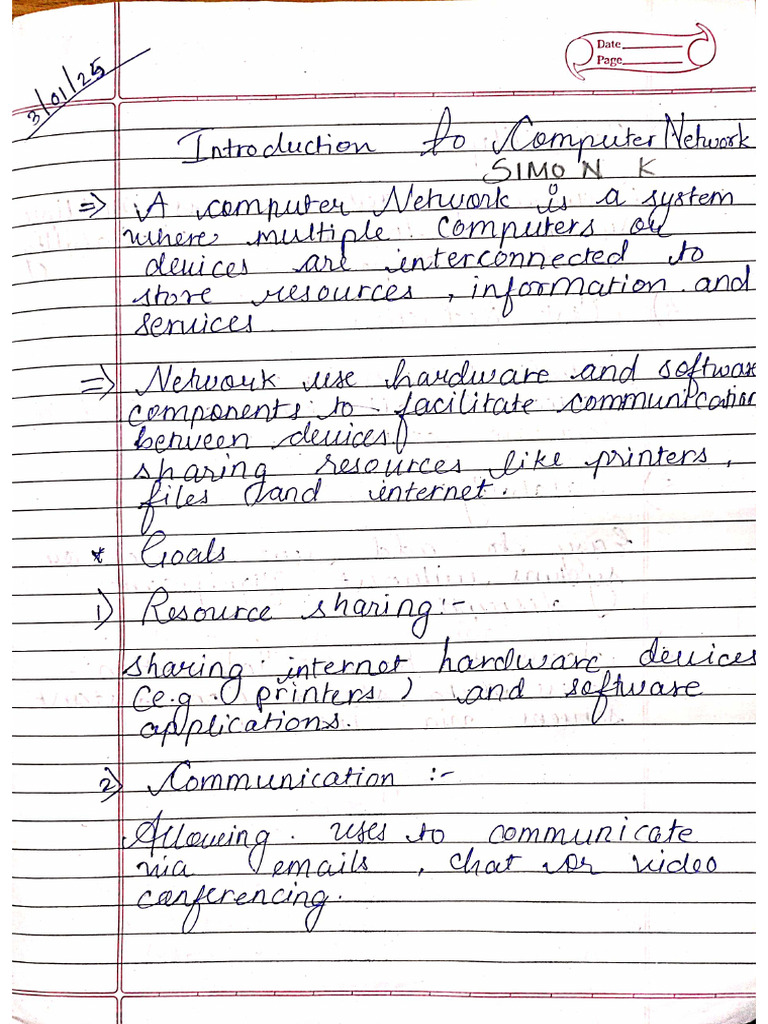 3/01/25
Date
Page
Introduction to Computer Network
SIMON K
=> A computer Network is a system
where multiple computers or
devices are interconnected to
store resources, information and
services
=> Network use hardware and software
components to facilitate communication
between devices
sharing resources like printers,
files and internet.
* Goals
1) Resource sharing:-
sharing internet hardware devices
(e.g. printers) and software
applications.
2) Communication :-
Allowing uses to communicate
via emails, chat or video
conferencing.